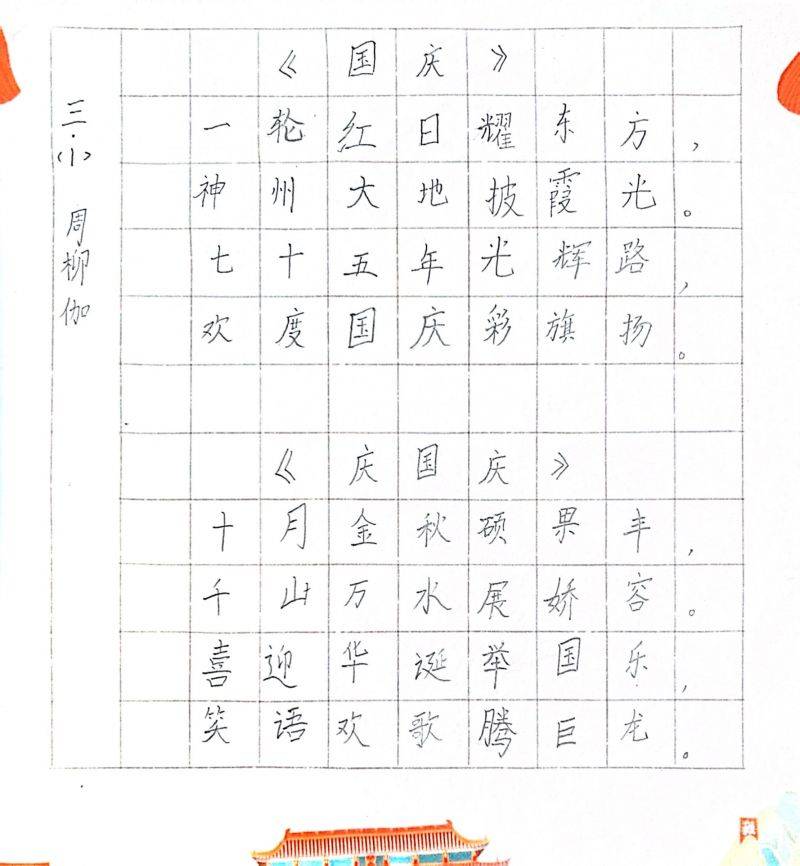 《国庆》
一轮红日耀东方，
神州大地披霞光。
七十五年光辉路，
欢度国庆彩旗扬。
《庆国庆》
十月金秋硕果丰，
千山万水展娇容。
喜迎华诞举国乐，
笑语欢歌腾巨龙。
三.(1) 周柳伽